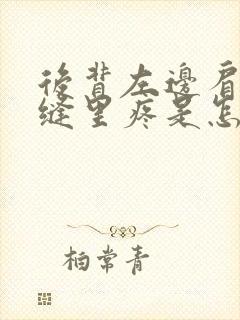 後背左邊肩
縫里疼是怎
柏常青